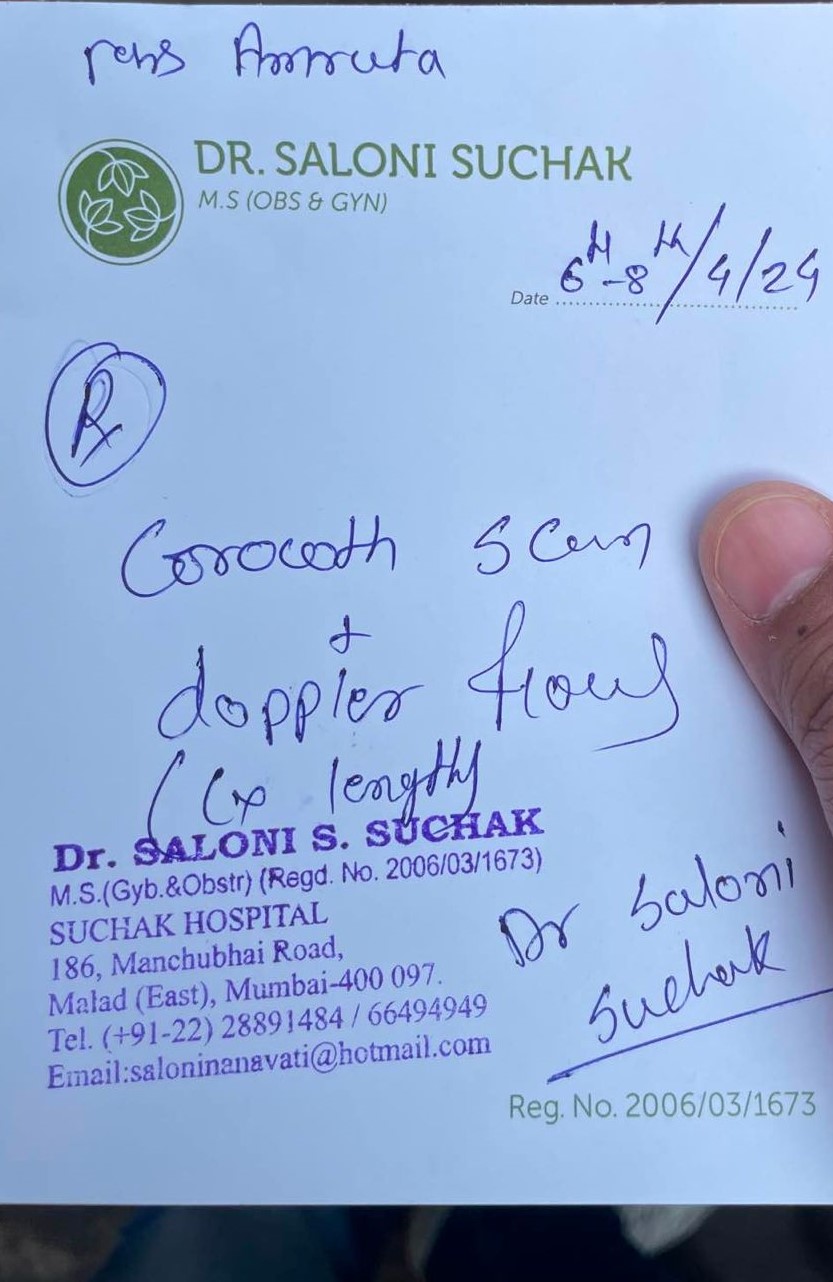 Mrs Amruta
DR. SALONI SUCHAK
M.S (OBS & GYN)
Date 6th-8th/4/24
Rx
Growth scan
+
doppler flows
(Cx length)
Dr. SALONI S. SUCHAK
M.S.(Gyb.&Obstr) (Regd. No. 2006/03/1673)
SUCHAK HOSPITAL
186, Manchubhai Road,
Malad (East), Mumbai-400 097.
Tel. (+91-22) 28891484 / 66494949
Email:saloninanavati@hotmail.com
Dr Saloni
Suchak
Reg. No. 2006/03/1673